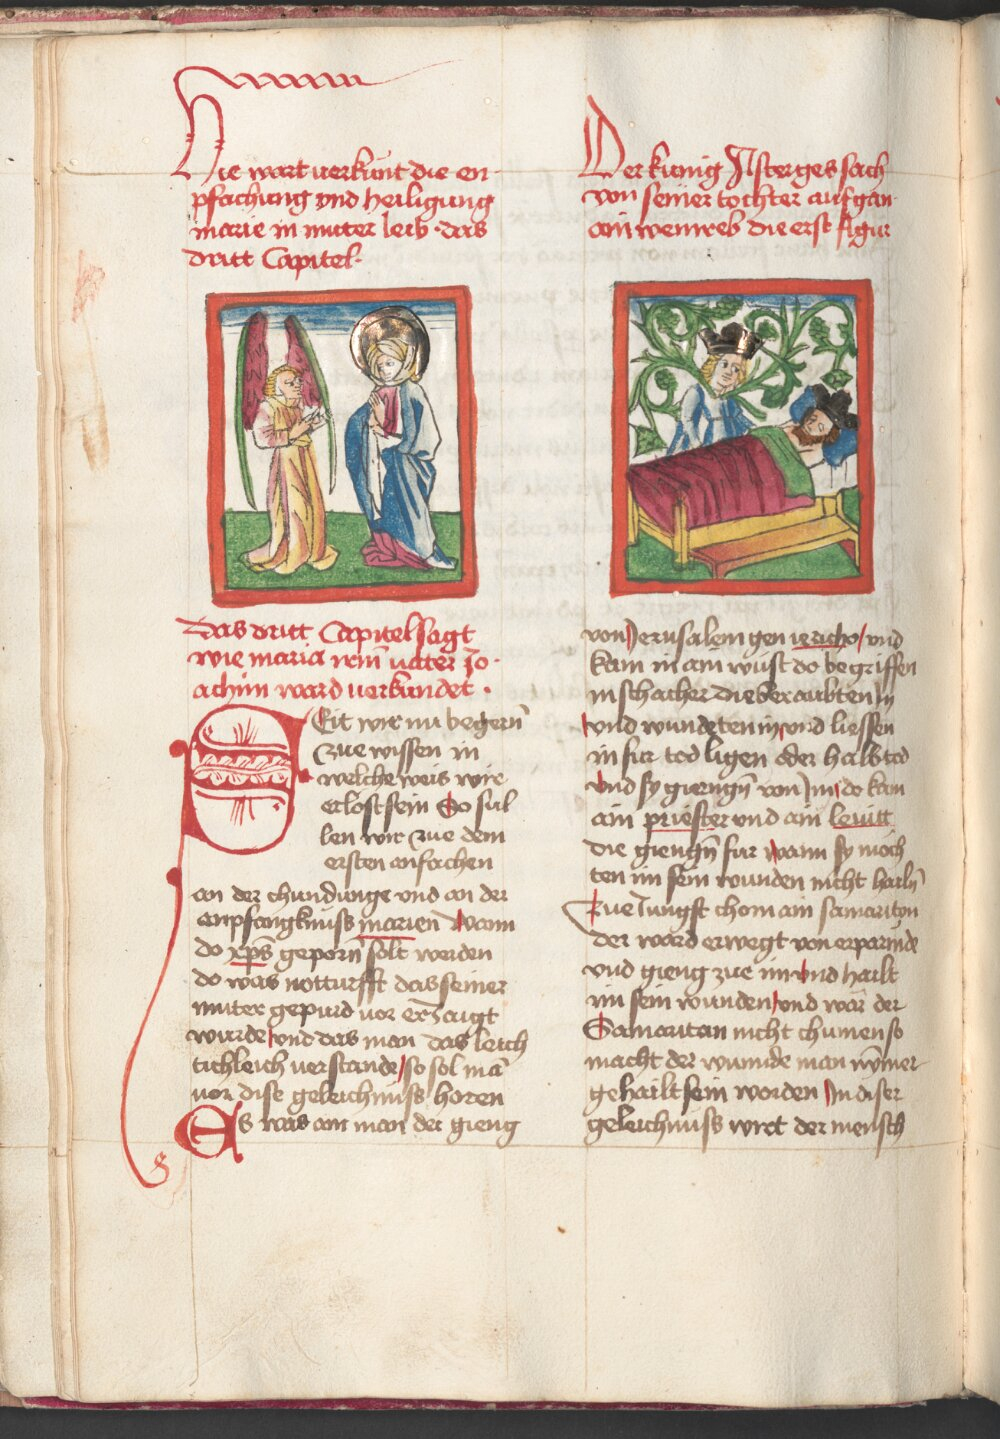 Hie wart uerkunt die en
pfachung vnd heiligung
marie in muter leib · das
dritt Capitel ·
Das dritt Capitel sagt
wie maria irm̄ uater Jo ·
achim ward uerkundet ·
SEit wir nu begern̄
zue wissen in
welche weis wir
erlost sein So sul
len wir zue dem
ersten anfachen
an der chundunge vnd an der
enpfangknuss marien Wann
do xp̄s geporn̄ solt werden
do was notturfft das seiner
muter gepurd vor erzaigt
wurde vnd das man das leich
tichleich uerstande so sol mā
vor dise geleichnuss horen
Es was ain man der gieng
Der kunig Asterges sach
von seiner tochter aufgan
ain weinreb die erst figur
von Jerusalem gen iericho vnd
kam in ain wüst do begriffen
in schacher die beraubten in
vnd wundeten in vnd liessen
in fur tod ligen oder halb tod
Vnd sy giengn̄ von Im do kam
ain priester vnd ain leuitt
die giengn̄ fur wann sy moch
ten im sein wunden nicht hailn̄
Zue Jungst chom ain samaritan
der ward erwegt von erparmde
vnd gieng zue im vnd hailt
im sein wunden vnd wär der
Samaritan nicht chumen so
macht der wunde man nȳmer
gehailt sein worden In diser
geleichnuss wirt der mensch